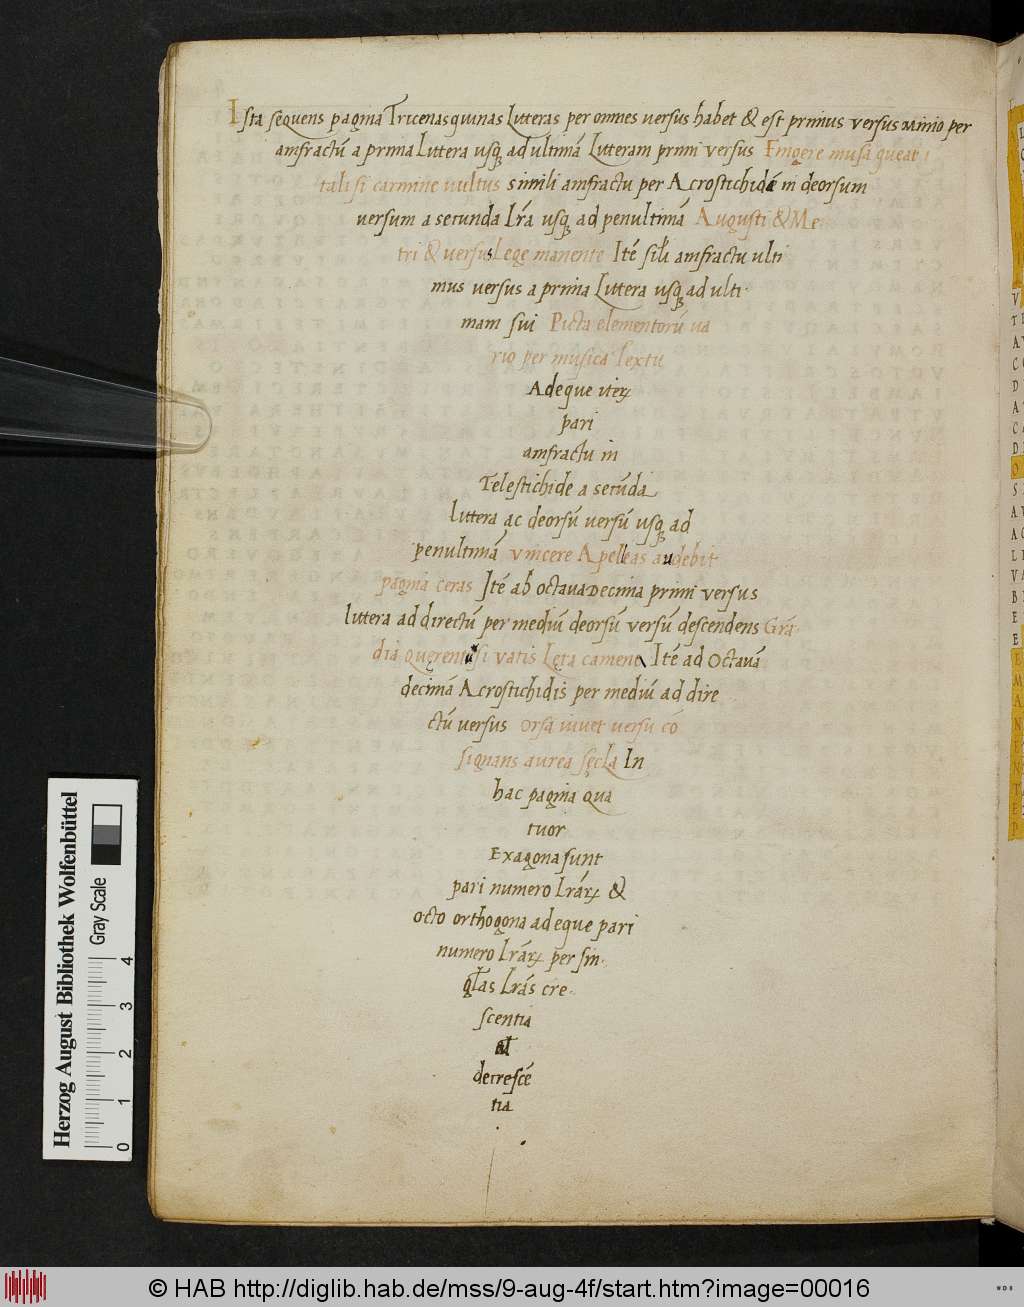 Ista sequens pagina Tricenas quinas Litteras per omnes versus habet & est primus versus Minio per
amfractū a prima Littera usq; ad ultimā Litteram primi versus Fingere musa queat
tali si carmine vultus simili amfractu per Acrostichidē in deorsum
versum a secunda Lr̄a usq; ad penultimā Augusti & Me
tri & versus Lege manente Itē sił'i amfractu ulti
mus versus a prima Littera usq; ad ulti
mam sui Picta elementorū va
rio per musica textu
Adeque iter
pari
amfractu in
Telestichide a secūda
littera ac deorsū versū usq; ad
penultimā vincere Apelleas audebit
pagina ceras Itē ab octava Decima primi versus
littera ad directū per mediū deorsū versū descendens Grā
dia querentusi vatis Leta cament Itē ad Octavā
decimā Acrostichidis per mediū ad dire
ctū versus orsa iuvet versu cō
signans aurea sęcla In
hac pagina qua
tuor
Exagona sunt
pari numero Lr̄arꝝ &
octo orthogona adeque pari
numero Lr̄arꝝ per sin
g̣las Lr̄as cre
scentia
al
decrescē
tia
V
T
A
C
D
A
C
D
O
S
A
A
L
V
B
E
E
E
M
A
N
E
N
T
E
P
Herzog August Bibliothek Wolfenbüttel
Gray Scale
0 1 2 3 4
© HAB http://diglib.hab.de/mss/9-aug-4f/start.htm?image=00016